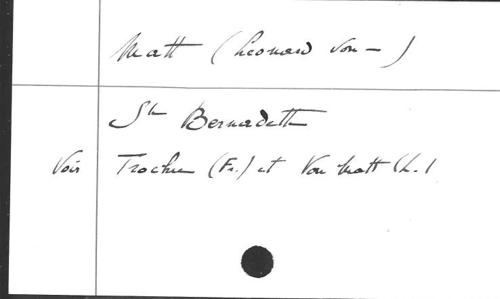 Matt (Léonard von —)
Ste Bernadette
Voir Trochu (Fr.) et Von Matt (L.)